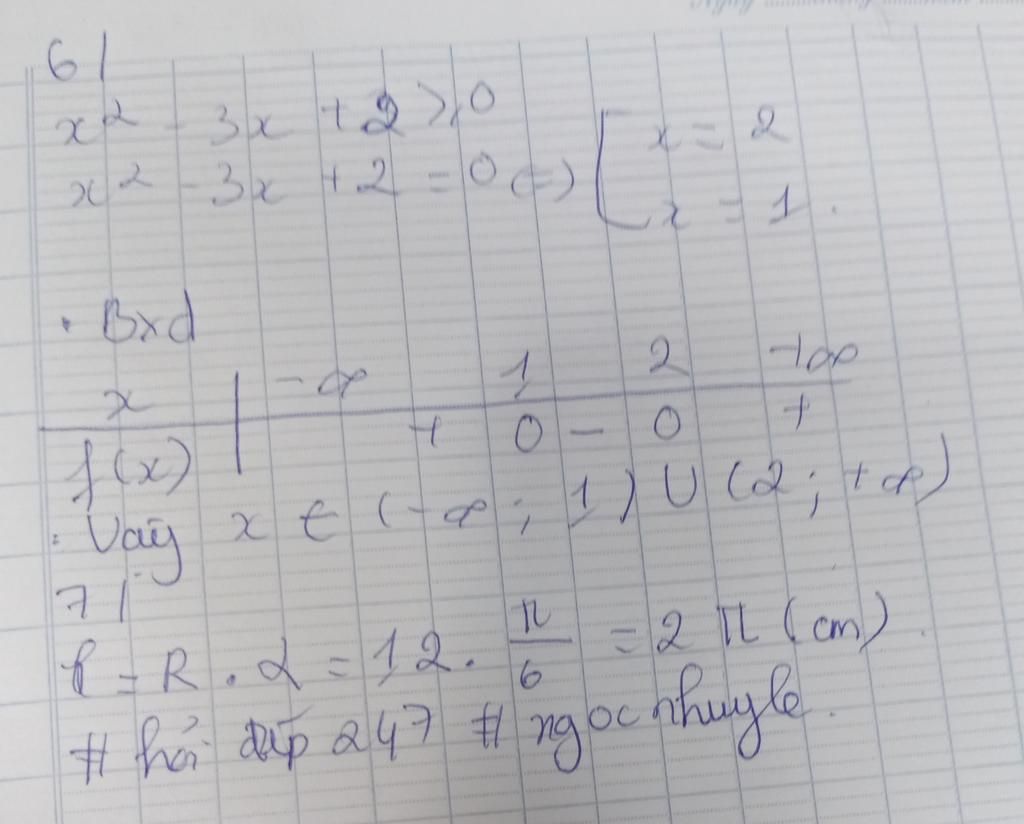 6/
x² - 3x + 2 > 0
x² - 3x + 2 = 0 (=) [ x = 2
x = 1.
• Bxd
x | -∞ 1 2 +∞
f(x) | + 0 - 0 +
. Vậy x ∈ (-∞ ; 1) ∪ (2 ; +∞)
7/
l = R . α = 12 . π/6 = 2π (cm).
# hỏi đáp 247 # ngocnhuyle.